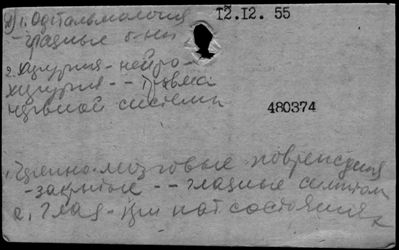 1. Офтальмология 12.12. 55
- глазные б-ни
2. Хирургия - нейро-
хирургия -- травма
нервной системы
480374
1. Черепно-мозговые повреждения
- закрытые -- глазные симптом
2. Глаз - при пат состояниях